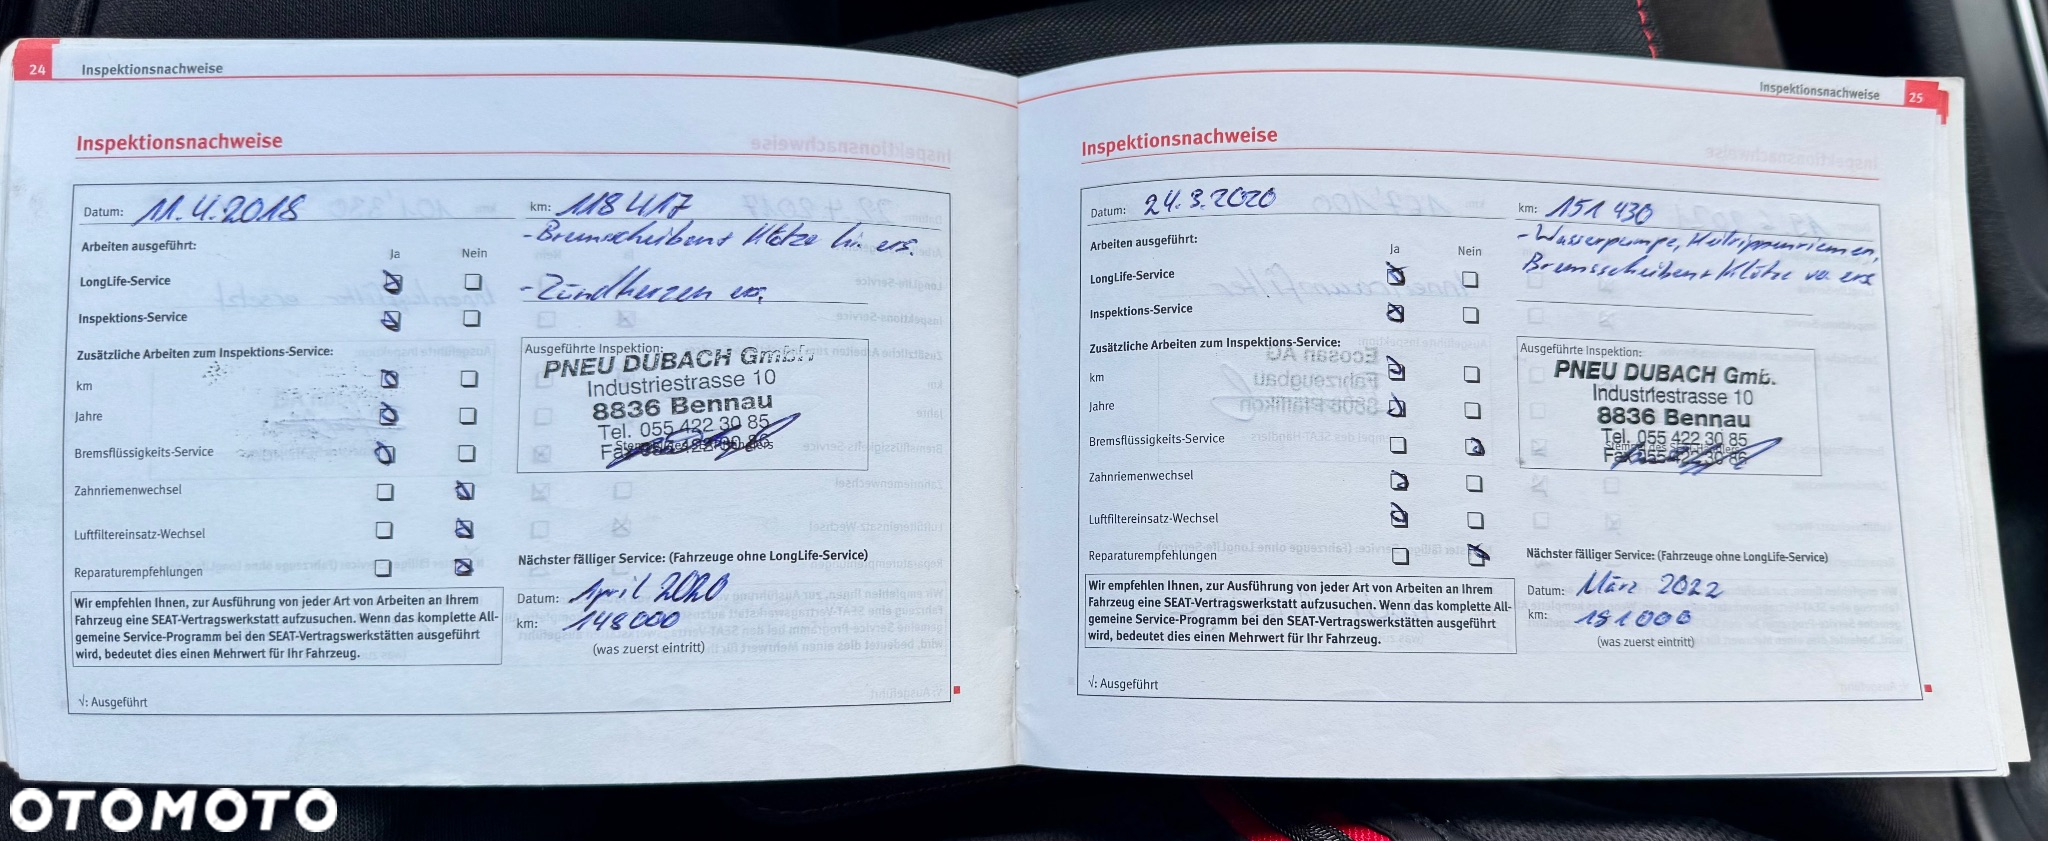 24 Inspektionsnachweise
Inspektionsnachweise
Datum: 11.4.2018
km: 118417
Arbeiten ausgeführt:
- Bremsscheiben + Klötze hi. ers.
Ja Nein
LongLife-Service
- Zündkerzen ers.
Inspektions-Service
Zusätzliche Arbeiten zum Inspektions-Service:
km
Jahre
Bremsflüssigkeits-Service
Zahnriemenwechsel
Luftfiltereinsatz-Wechsel
Reparaturempfehlungen
Ausgeführte Inspektion:
PNEU DUBACH GmbH
Industriestrasse 10
8836 Bennau
Tel. 055 422 30 85
Fax 055 422 30 86
Nächster fälliger Service: (Fahrzeuge ohne LongLife-Service)
Datum: April 2020
km: 148000
(was zuerst eintritt)
Wir empfehlen Ihnen, zur Ausführung von jeder Art von Arbeiten an Ihrem
Fahrzeug eine SEAT-Vertragswerkstatt aufzusuchen. Wenn das komplette All-
gemeine Service-Programm bei den SEAT-Vertragswerkstätten ausgeführt
wird, bedeutet dies einen Mehrwert für Ihr Fahrzeug.
√: Ausgeführt
Inspektionsnachweise 25
Inspektionsnachweise
Datum: 24.3.2020
km: 151 430
Arbeiten ausgeführt:
- Wasserpumpe, Keilrippenriemen,
Ja Nein
LongLife-Service
Bremsscheiben + Klötze vo ers
Inspektions-Service
Zusätzliche Arbeiten zum Inspektions-Service:
km
Jahre
Bremsflüssigkeits-Service
Zahnriemenwechsel
Luftfiltereinsatz-Wechsel
Reparaturempfehlungen
Ausgeführte Inspektion:
PNEU DUBACH Gmb.
Industriestrasse 10
8836 Bennau
Tel. 055 422 30 85
Fax 055 422 30 86
Nächster fälliger Service: (Fahrzeuge ohne LongLife-Service)
Datum: März 2022
km: 181000
(was zuerst eintritt)
Wir empfehlen Ihnen, zur Ausführung von jeder Art von Arbeiten an Ihrem
Fahrzeug eine SEAT-Vertragswerkstatt aufzusuchen. Wenn das komplette All-
gemeine Service-Programm bei den SEAT-Vertragswerkstätten ausgeführt
wird, bedeutet dies einen Mehrwert für Ihr Fahrzeug.
√: Ausgeführt
OTOMOTO